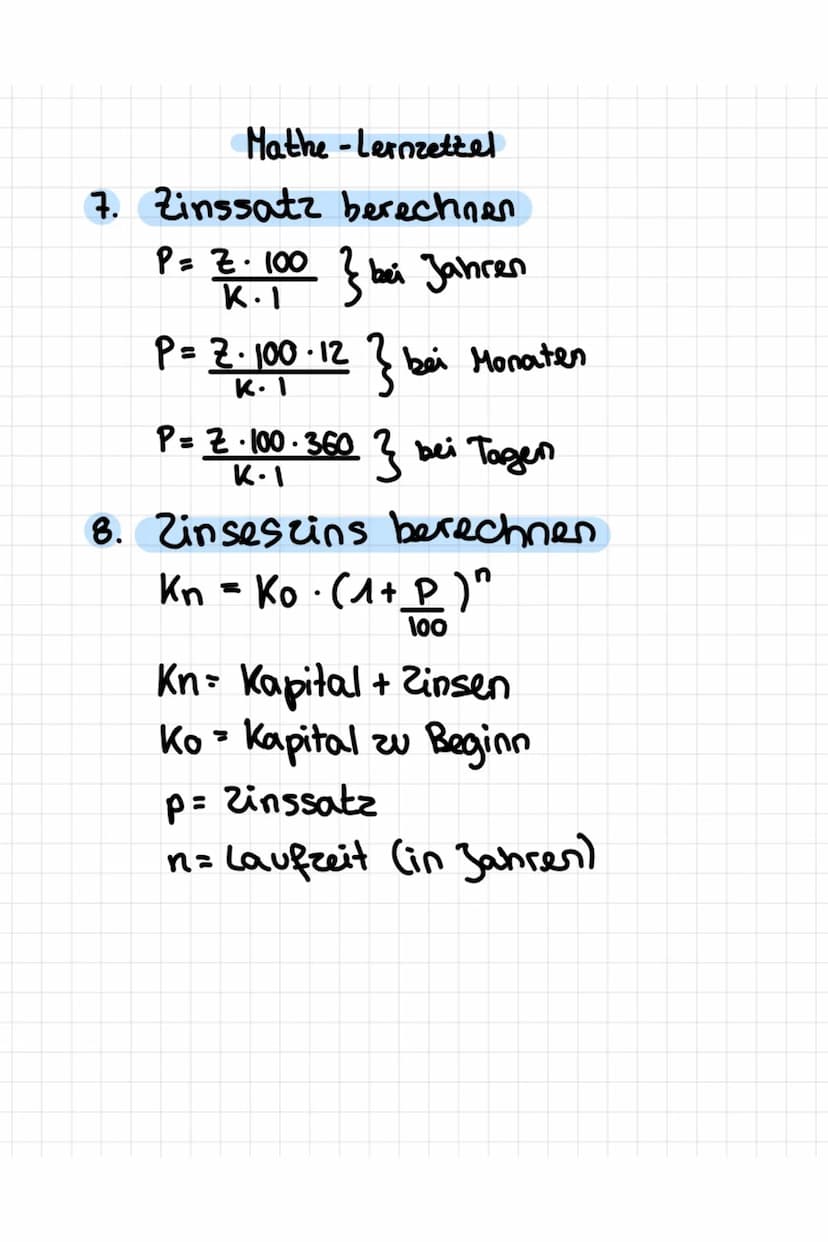 Mathe-Lernzettel
7. Zinssatz berechnen
P = Z · 100 / K · 1 } bei Jahren
P = Z · 100 · 12 / K · 1 } bei Monaten
P = Z · 100 · 360 / K · 1 } bei Tagen
8. Zinseszins berechnen
Kn = K0 · (1 + P / 100)^n
Kn = Kapital + Zinsen
K0 = Kapital zu Beginn
p = Zinssatz
n = Laufzeit (in Jahren)